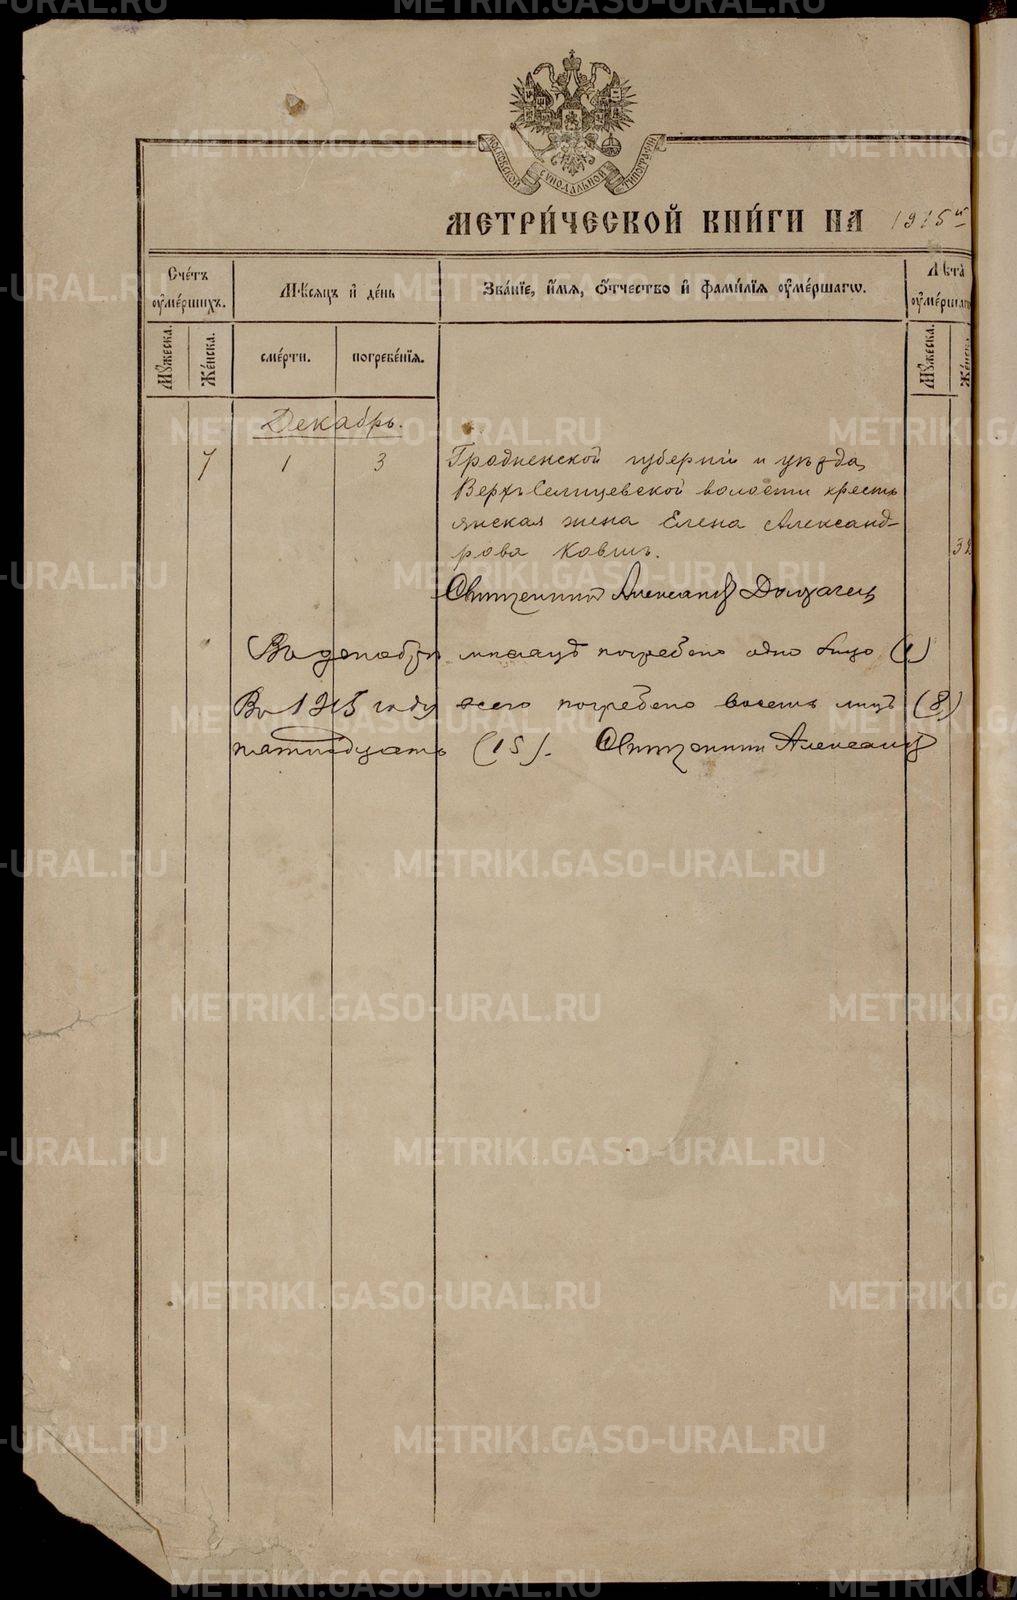 МОСКОВСКОЙ СѴНОДАЛЬНОЙ ТИПОГРАФІИ
МЕТРИ́ЧЕСКОЙ КНИ́ГИ НА 1915й
Сче́тъ оу҆ме́ршихъ.
Мѣсяцъ и҆ де́нь
Зва́нїе, и҆́мя, ѻ҆́тчество и҆ фами́лїя оу҆ме́ршагѡ.
Лѣта̀ оу҆ме́ршагѡ
Му́жеска.
Же́нска.
сме́рти.
погребе́нїя.
Му́жеска.
Же́нска.
Декабрь.
7 1 3 Гродненской губерніи и уѣзда,
Верхъ Селицевской волости кресть
янская жена Елена Александ-
рова Ковшъ. 32
Священникъ Александръ
Въ декабрѣ мѣсяцѣ погребено одно лицо (1)
Въ 1915 году всего погребено восемь лицъ (8)
пятнадцать (15). Священникъ Александръ
METRIKI.GASO-URAL.RU